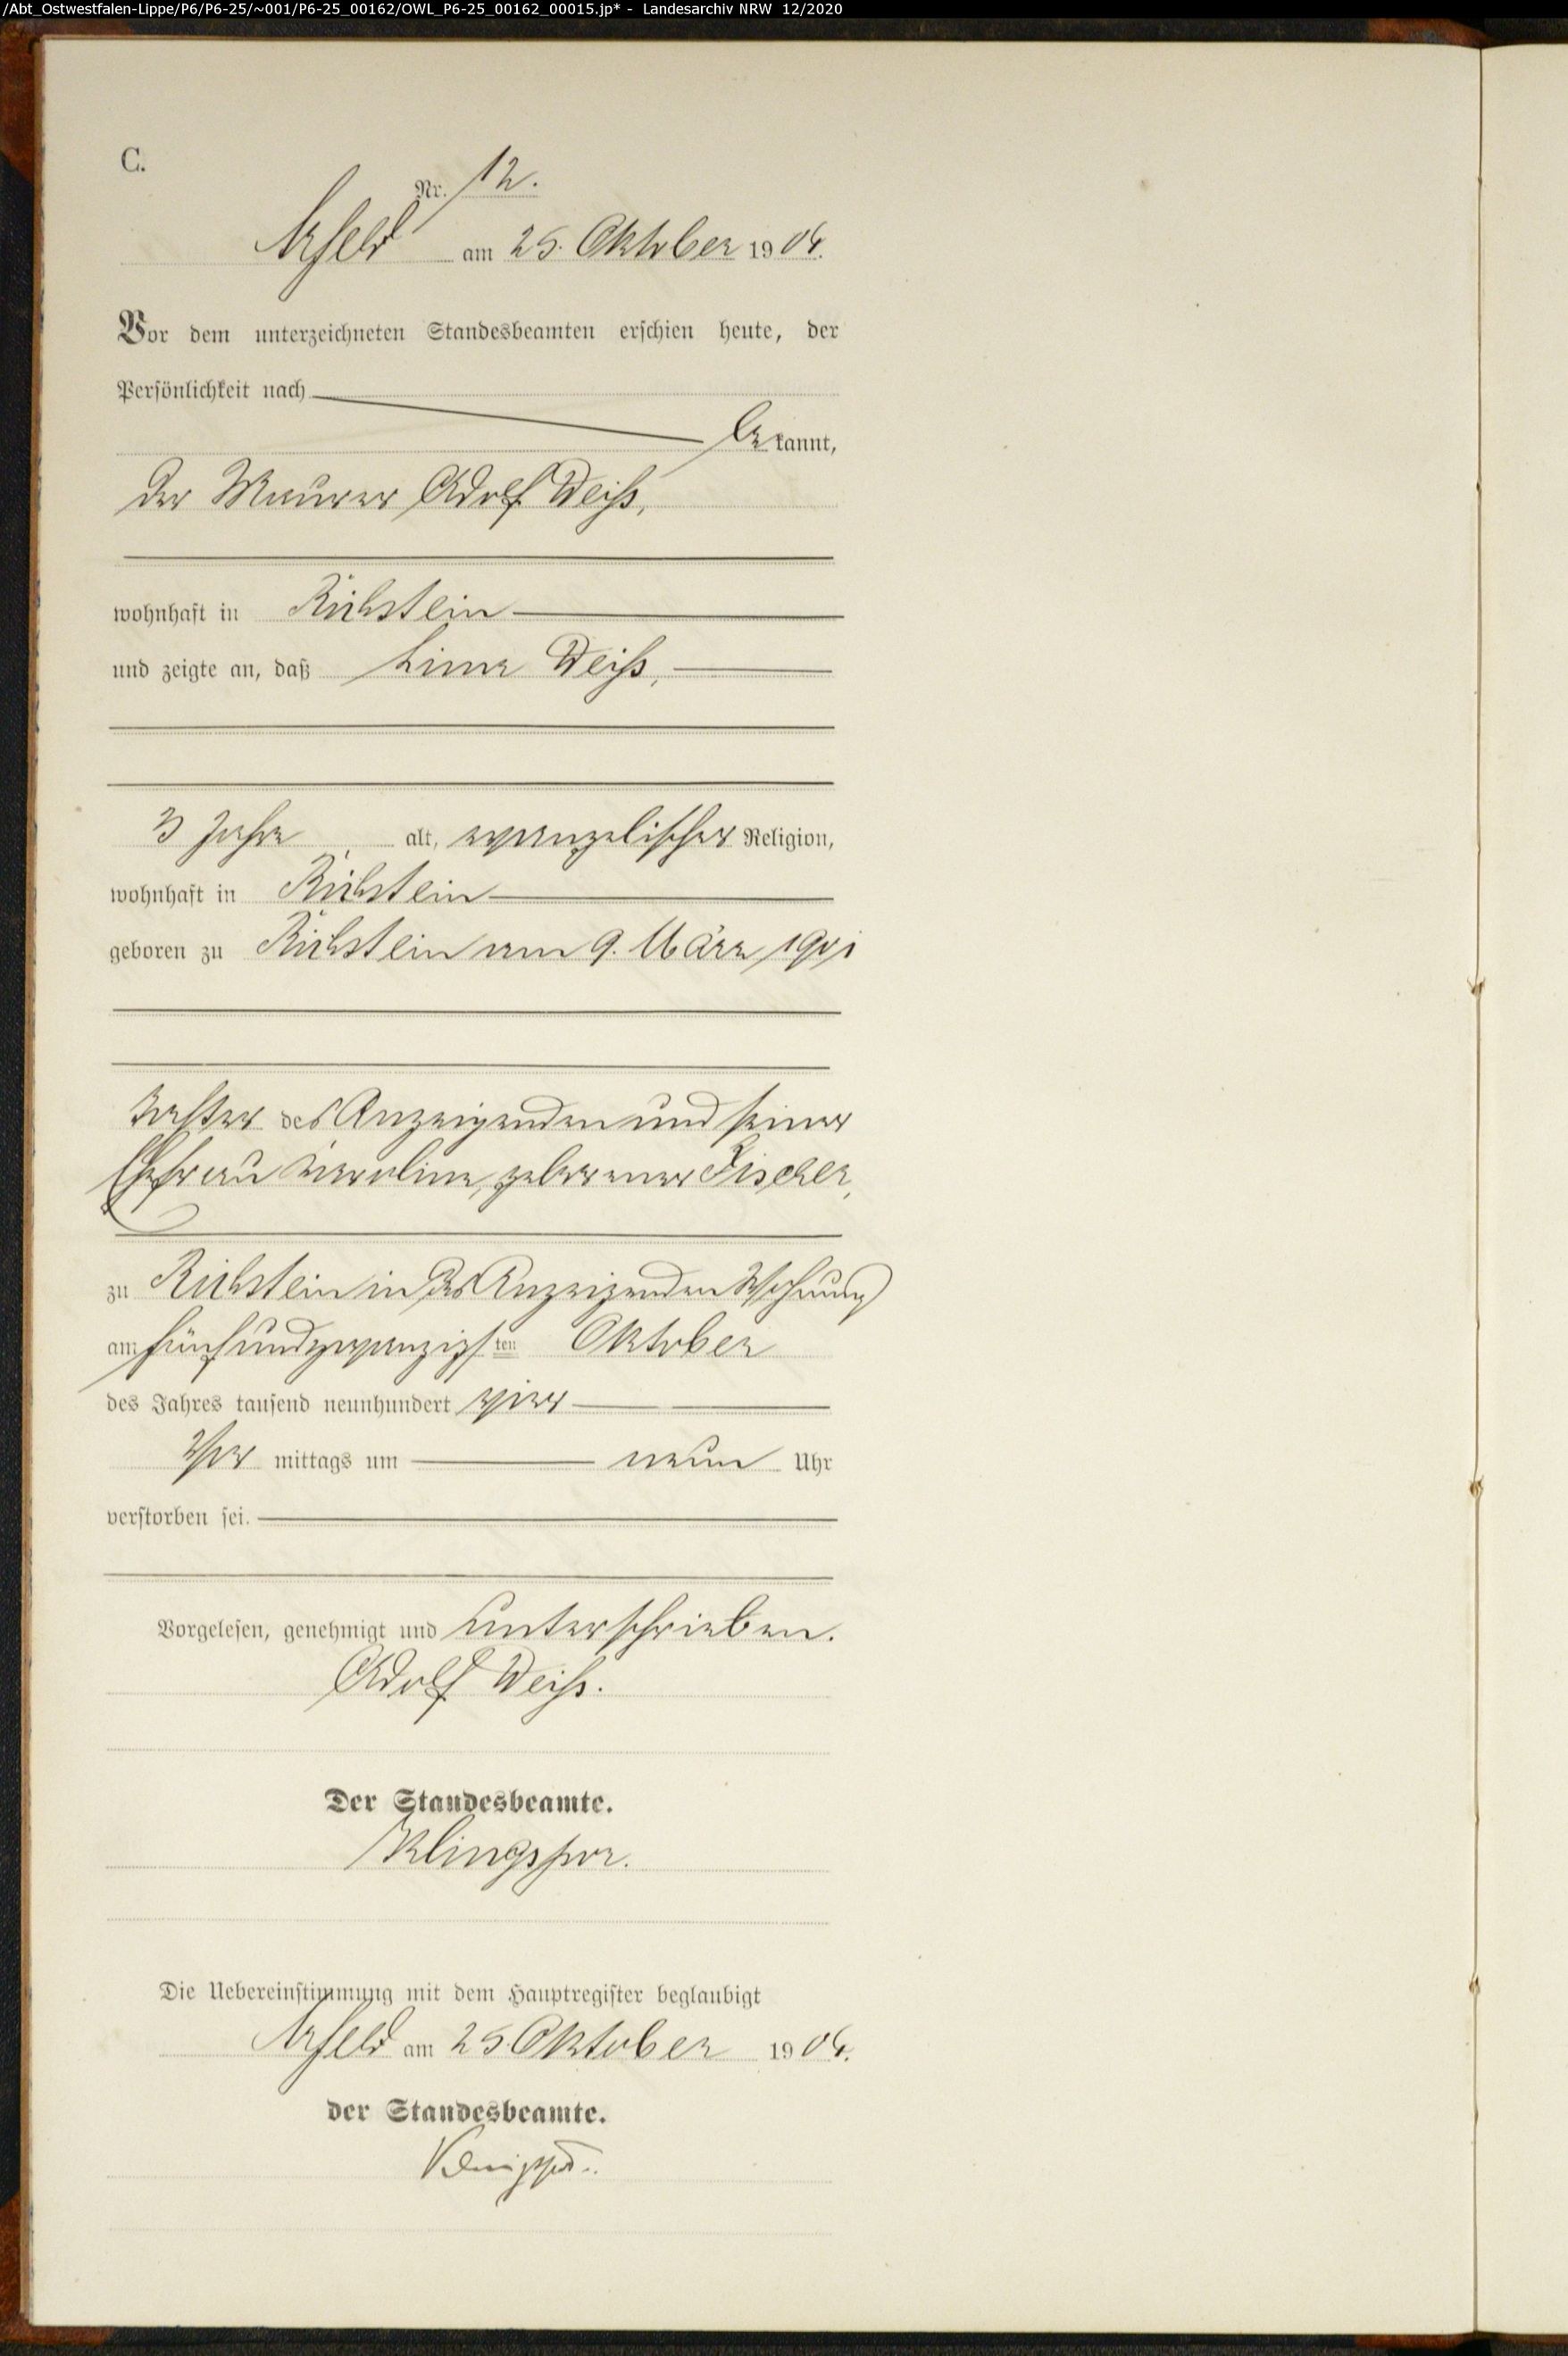 /Abt_Ostwestfalen-Lippe/P6/P6-25/~001/P6-25_00162/OWL_P6-25_00162_00015.jp* - Landesarchiv NRW 12/2020
C.
Nr. 12.
Arfeld am 25. Oktober 1904.
Vor dem unterzeichneten Standesbeamten erschien heute, der
Persönlichkeit nach
bekannt,
der Maurer Adolf Weiß,
wohnhaft in Richstein
und zeigte an, daß Lina Weiß,
3 Jahre, alt, evangelischer Religion,
wohnhaft in Richstein
geboren zu Richstein am 9. März 1901
Tochter des Anzeigenden und seiner
Ehefrau Karoline, geborener Fischer,
zu Richstein in des Anzeigenden Wohnung
am fünfundzwanzigsten Oktober
des Jahres tausend neunhundert vier
Vor mittags um neun Uhr
verstorben sei.
Vorgelesen, genehmigt und unterschrieben.
Adolf Weiß.
Der Standesbeamte.
Klingspor.
Die Uebereinstimmung mit dem Hauptregister beglaubigt
Arfeld am 25. Oktober 1904.
der Standesbeamte.
Klingspor.